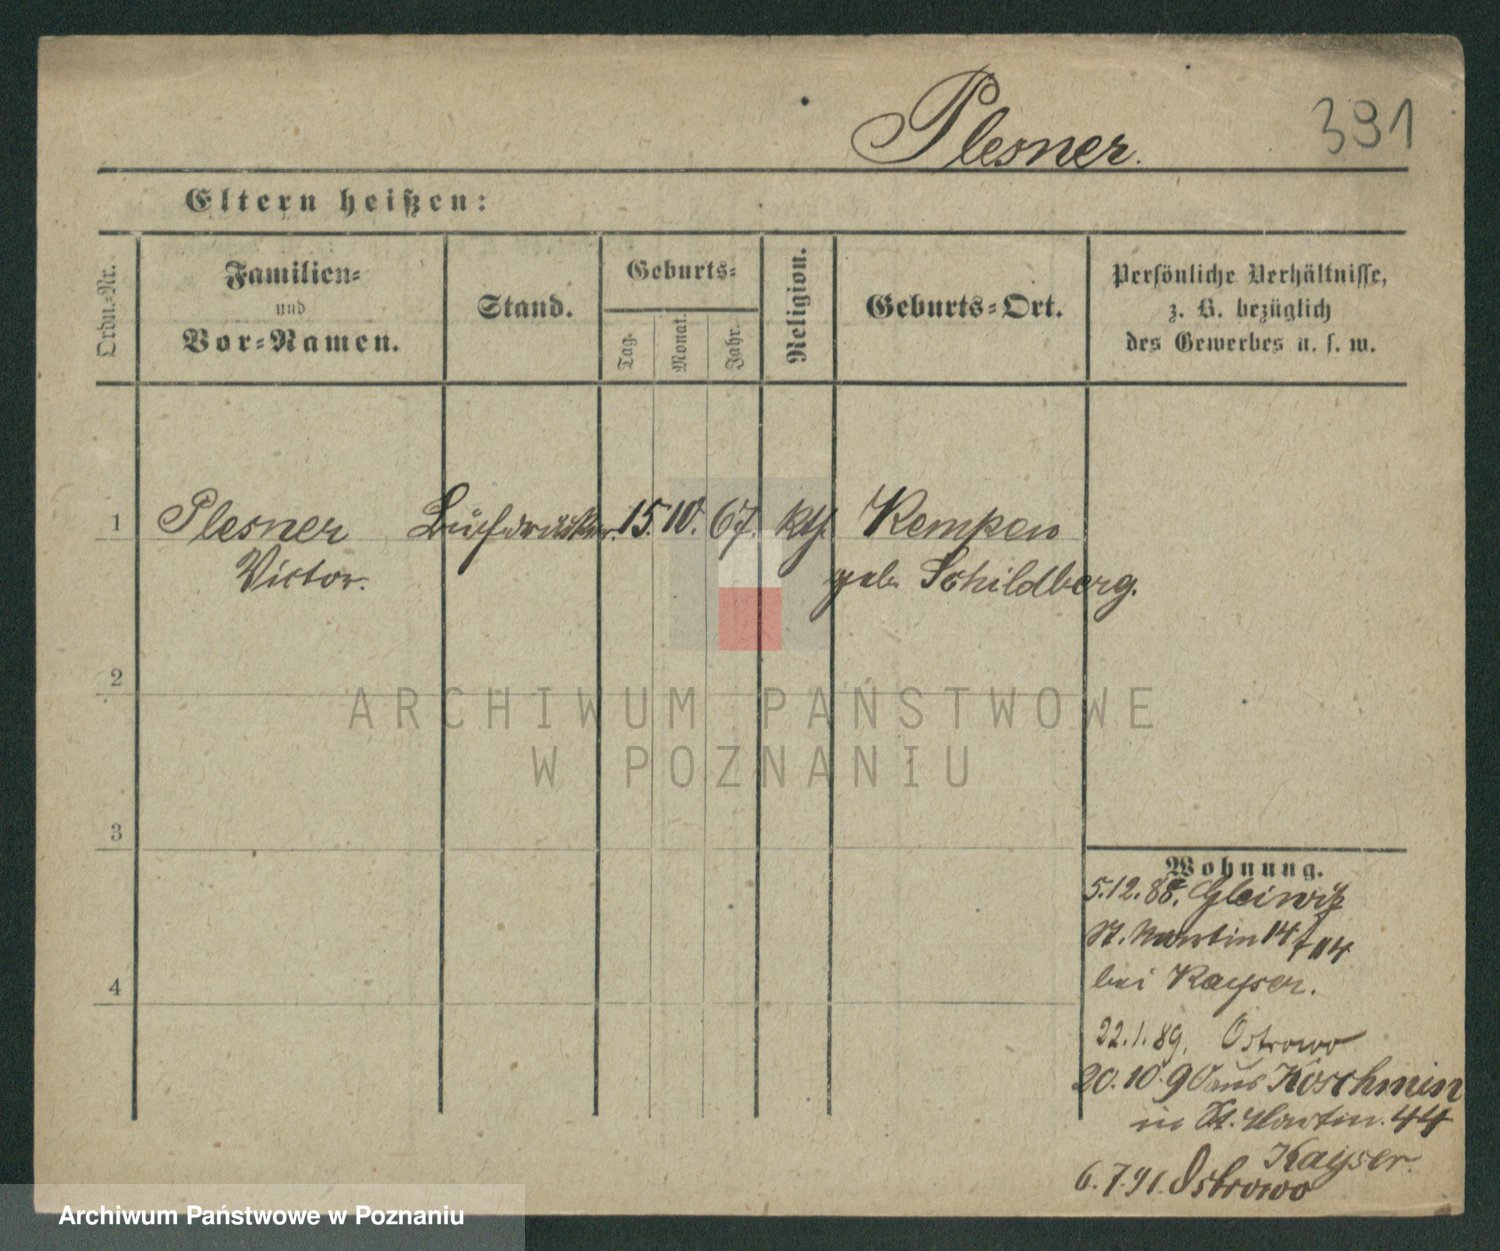 Plesner.
391
Eltern heißen:
Ordn.-Nr.
Familien-
und
Vor-Namen.
Stand.
Geburts-
Tag.
Monat.
Jahr.
Religion.
Geburts-Ort.
Persönliche Verhältnisse,
z. B. bezüglich
des Gewerbes u. s. w.
1 Plesner Buchdrucker. 15. 10. 67. kth. Kempen
Victor. geb. Schildberg.
2
3
4
Wohnung.
5.12.88. Gleiwitz
St. Martin 14
bei Kayser.
22.1.89. Ostrowo
20.10.90 aus Koschmin
in St. Martin. 44
Kayser.
6.7.91. Ostrowo
ARCHIWUM PAŃSTWOWE
W POZNANIU
Archiwum Państwowe w Poznaniu